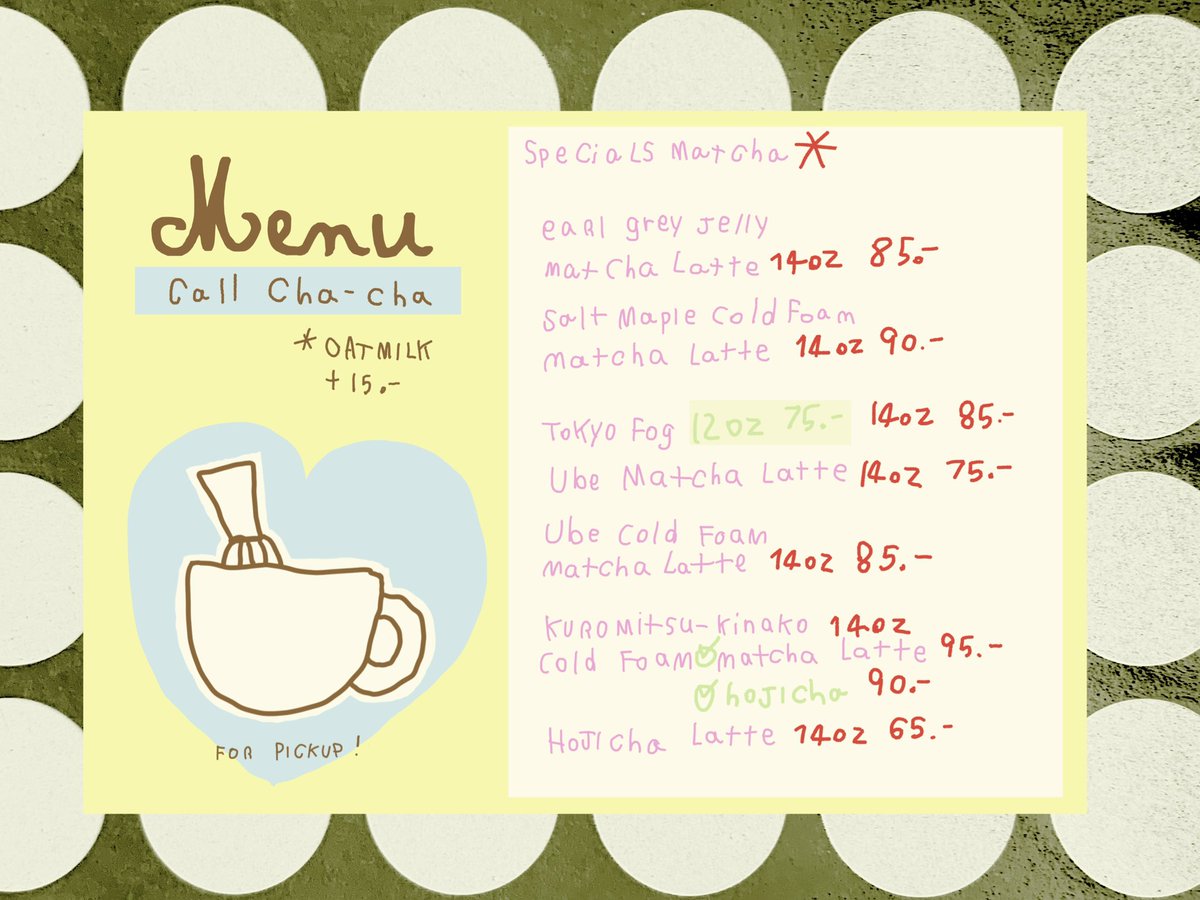 Menu
Call Cha-cha
*OATMILK
+15.-
FOR PICKUP!
SpecialS Matcha*
earl grey Jelly
matcha Latte 14oz 85.-
Salt Maple Cold Foam
matcha Latte 14oz 90.-
Tokyo Fog 12oz 75.- 14oz 85.-
Ube Matcha Latte 14oz 75.-
Ube Cold Foam
matcha Latte 14oz 85.-
Kuromitsu-kinako 14oz
Cold Foam matcha Latte 95.-
hojicha 90.-
Hojicha Latte 14oz 65.-